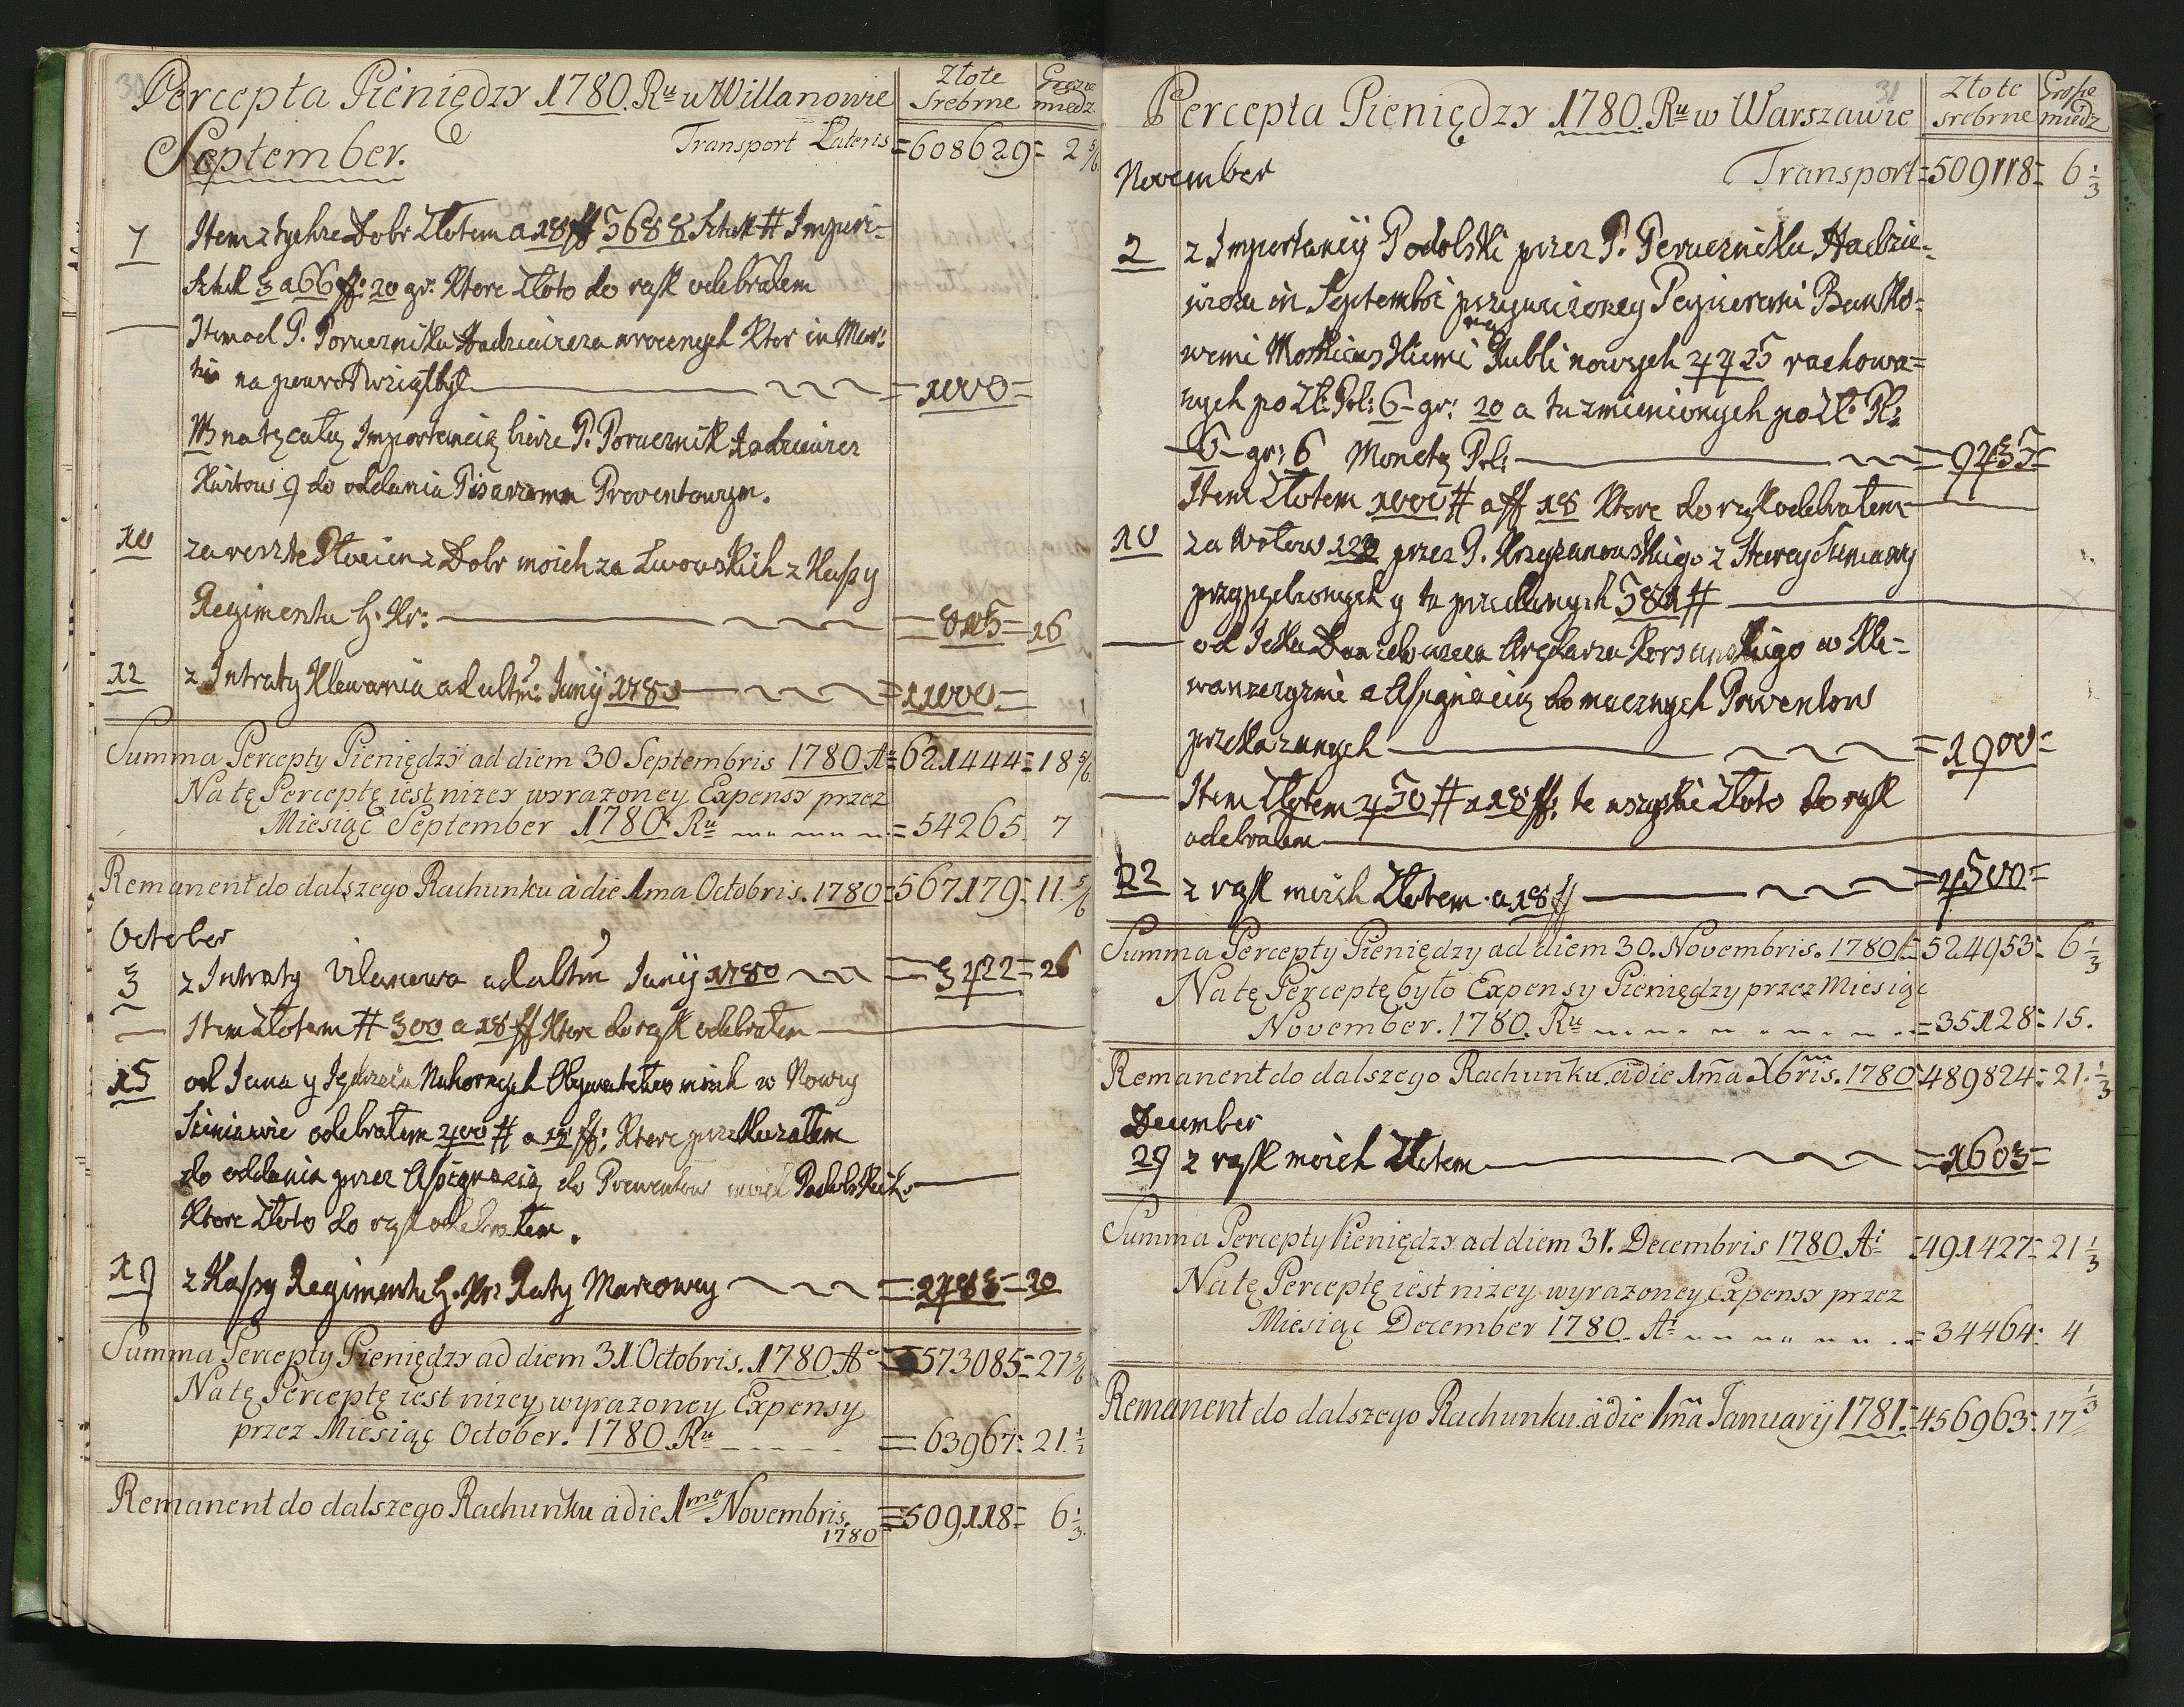 30
Percepta Pieniędzy 1780. Ru w Willanowie
Złote Srebrne
Grosze miedz.
September.
Transport Lateris =608629= 2 5/6
7 Item z tychże Dobr Złotem a 18 ff 5688 Sztuk # Imperi=
Sztuk 3 a 66 ff: 20 gr: Ktore Złoto do rąk odebrałem
Item od P. Porucznika Hadziewicza wroconych Ktor in Mar:
tio na powrot wziął był =1000=
NB na tę całą Importancią bierze P. Porucznik Hadziewicz
Kwitow 9 do oddania Pisarzom Proventowym.
10 za reszte Płocien z Dobr moich za Lwowskich z Kassy
Regimentu G. Kr: =815=16
12 z Intraty Klewania ad ultm: Junij 1780 =11000=
Summa Percepty Pieniędzy ad diem 30 Septembris 1780 A =621444=18 5/6
Na tę Perceptę iest nizey wyrazoney Expensy przez
Miesiąc September 1780 Ru =54265. 7
Remanent do dalszego Rachunku a die 1ma Octobris. 1780 =567179=11. 5/6
October
3 z Intraty Vilanowa ad ultm Junij 1780 =3422=26
Item Złotem # 300 a 18 ff Ktore do rąk odebrałem
15 od Jana y Jędrzeia Nahornych Obywatelow mich w Nowey
Sieniawie odebrałem 400 # a 18 ff: Ktore przekazałem
do oddania przez Assignacią do Prowentow moich Podolskich
Ktore Złoto do rąk odebrałem.
19 z Kassy Regimentu G. Kr: Raty Marcowey =2483=20
Summa Percepty Pieniędzy ad diem 31. Octobris. 1780 A =573085=27 5/6
Na tę Perceptę iest nizey wyrazoney Expensy
przez Miesiąc October. 1780. Ru =63967=21. 1/2
Remanent do dalszego Rachunku a die 1ma Novembris. =509118= 6 1/3.
1780
31
Percepta Pieniędzy 1780. Ru w Warszawie
Złote srebrne
Grosze miedz
November
Transport =509118= 6 1/3
2 z Importancij Podolskie przez P. Porucznika Hadzie=
wicza in Septembri przywiezoney Papierami Banko=
wemi Moskiewskiemi na Rubli nowych 4425 rachowa=
nych po Zł: Pol: 6 gr: 20 a tu zmienionych po Zł. Pl:
6 gr: 6 Monetą Pol: =27435=
Item Złotem 1000 # a ff 18 Ktore do rąk odebrałem
10 za Wołow 123 przez P. Krzyzanowskiego z Starey Sieniawy
przypędzonych y tu przedanych 581 #
od Jcka Dawidowicza Arędarza Korsunskiego w Kle=
przekazanych =1900=
Item Złotem 450 # a 18 ff: te wszystkie Złoto do rąk
odebrałem
22 z rąk moich Złotem a 18 ff =4500=
Summa Percepty Pieniędzy ad diem 30. Novembris. 1780 =524953= 6 1/3
Na tę Perceptę było Expensy Pieniędzy przez Miesiąc
November. 1780. Ru =35128=15.
Remanent do dalszego Rachunku a die 1ma Xbris. 1780 =489824=21. 1/3
December
29 z rąk moich Złotem =1603=
Summa Percepty Pieniędzy ad diem 31. Decembris 1780 Ai =491427=21 1/3
Na tę Perceptę iest nizey wyrazoney Expensy przez
Miesiąc December 1780 Ai =34464= 4
Remanent do dalszego Rachunku a die 1ma Januarij 1781. =456963=17 1/3